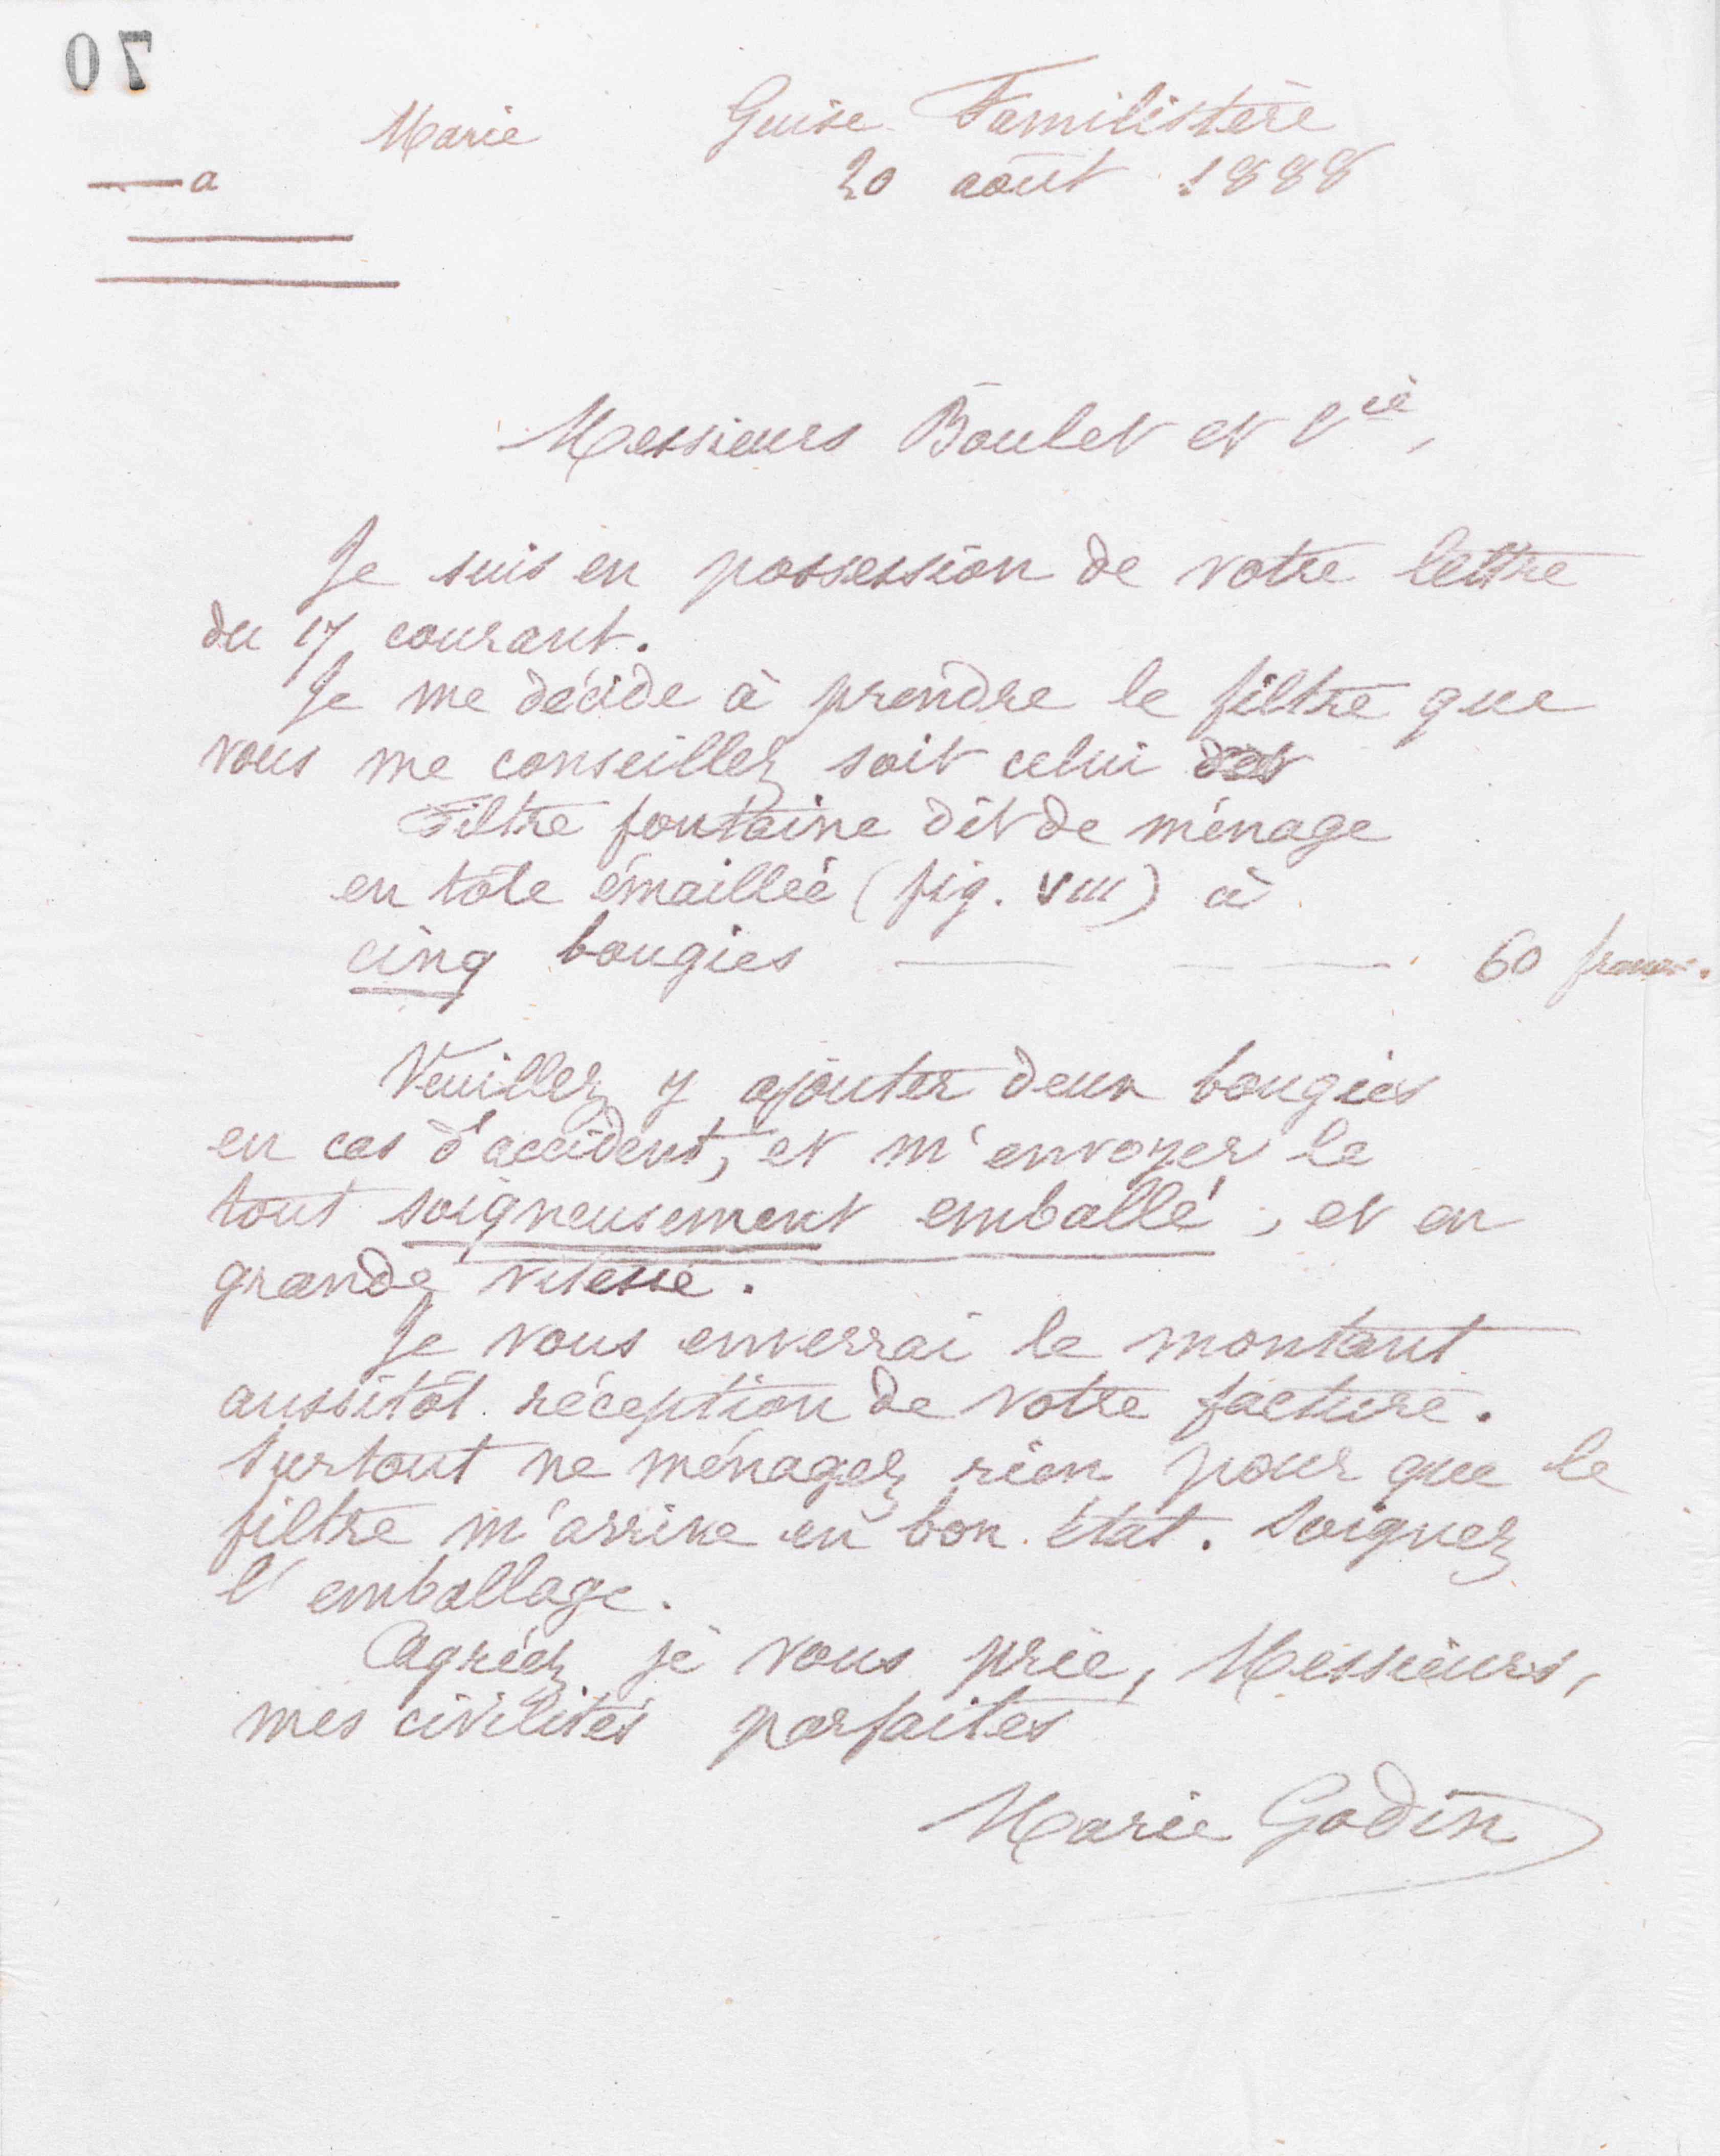 70
Marie Guise Familistère
a 20 août 1888
Messieurs Boulet et Cie,
Je suis en possession de votre lettre
du 17 courant.
Je me décide à prendre le filtre que
vous me conseillez soit celui
Filtre fontaine dit de ménage
en tôle émaillée (fig. VIII) à
cinq bougies 60 francs.
Veuillez y ajouter deux bougies
en cas d'accident, et m'envoyer le
tout soigneusement emballé, et en
grande vitesse.
Je vous enverrai le montant
aussitôt réception de votre facture.
Surtout ne ménagez rien pour que le
filtre m'arrive en bon état. Soignez
l'emballage.
Agréez je vous prie, Messieurs,
mes civilités parfaites
Marie Godin